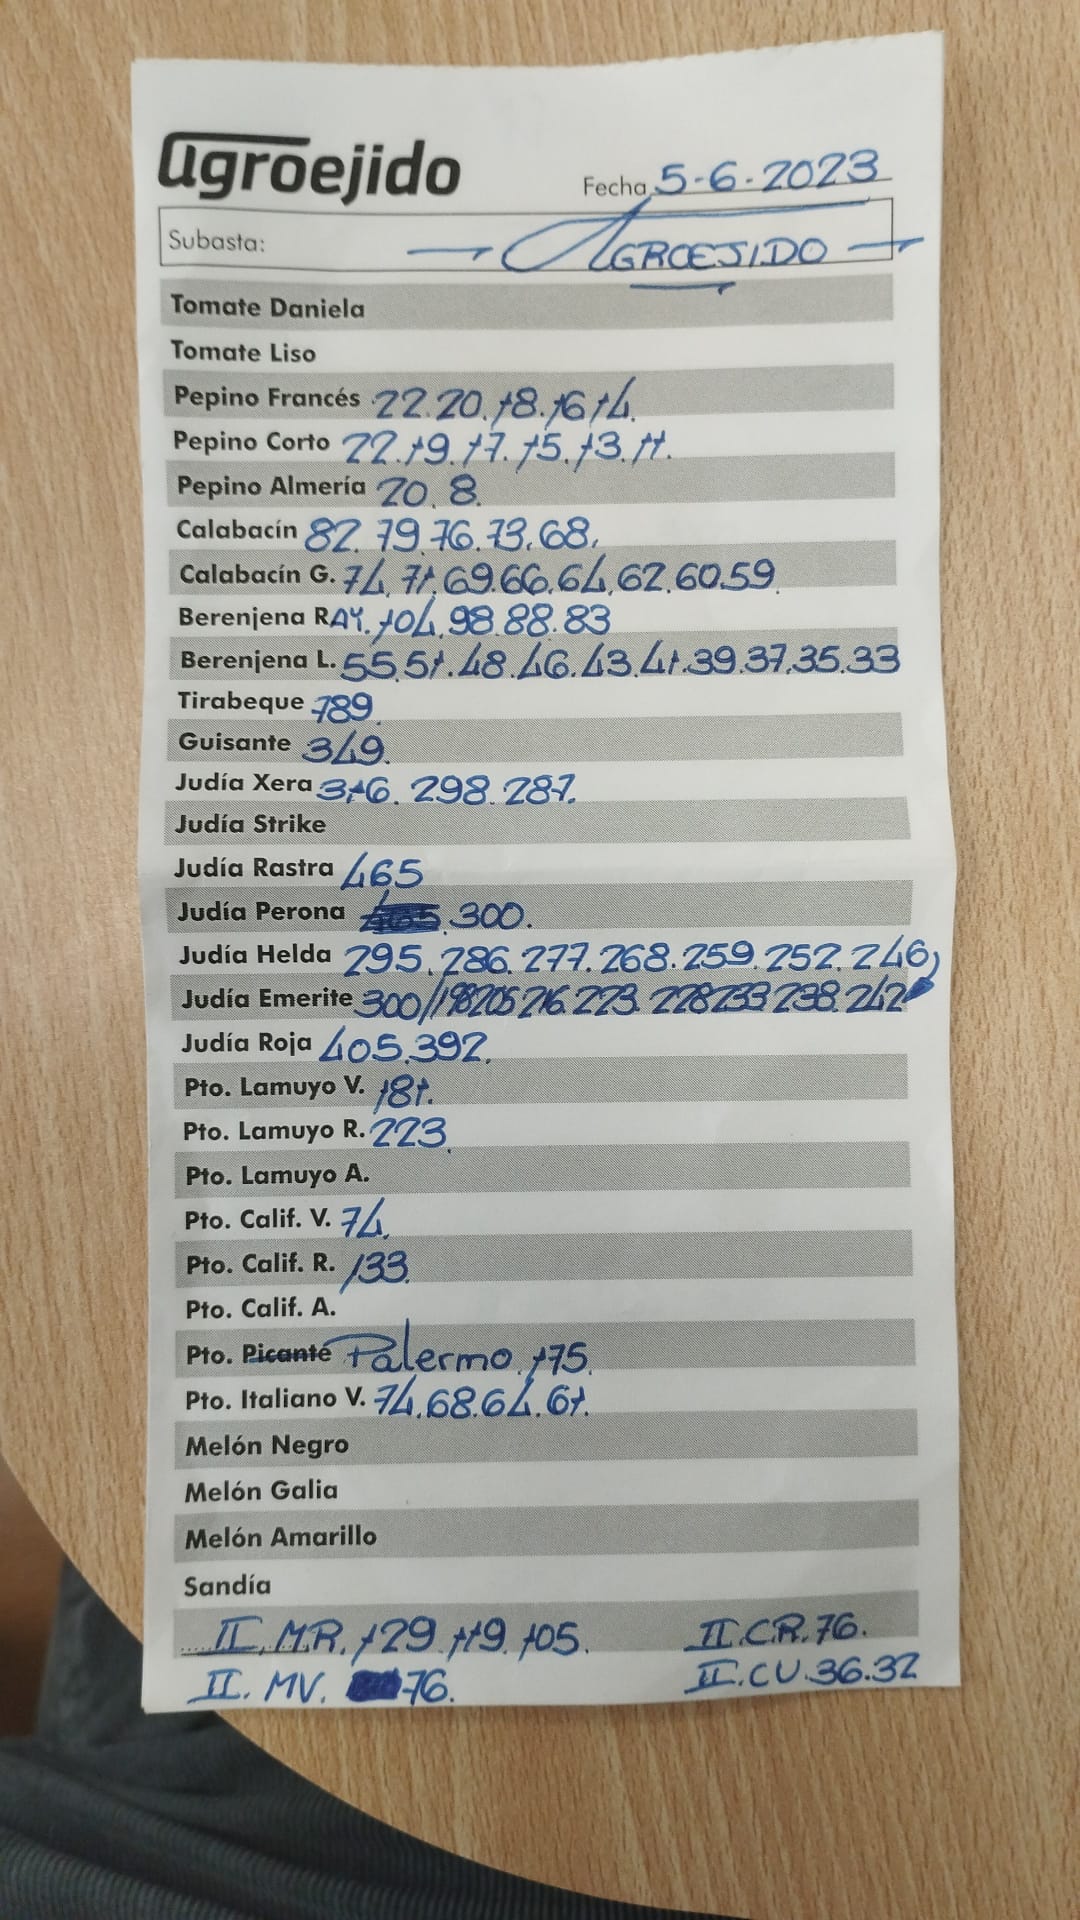 agroejido
Fecha 5-6-2023
Subasta: AGROEJIDO
Tomate Daniela
Tomate Liso
Pepino Francés 22.20.18.16.14.
Pepino Corto 22.19.17.15.13.11.
Pepino Almería 20.8.
Calabacín 82.79.76.73.68.
Calabacín G. 74.71.69.66.64.62.60.59.
Berenjena RAY. 104.98.88.83
Berenjena L. 55.51.48.46.43.41.39.37.35.33
Tirabeque 789.
Guisante 349.
Judía Xera 316.298.287.
Judía Strike
Judía Rastra 465
Judía Perona 300.
Judía Helda 295.286.277.268.259.252.246
Judía Emerite 300//198205.216.223.228233.238.242
Judía Roja 405.392.
Pto. Lamuyo V. 181.
Pto. Lamuyo R. 223.
Pto. Lamuyo A.
Pto. Calif. V. 74.
Pto. Calif. R. 133.
Pto. Calif. A.
Pto. Picante Palermo.175.
Pto. Italiano V. 74.68.64.61.
Melón Negro
Melón Galia
Melón Amarillo
Sandía
II.M.R.129.119.105. II.C.R.76.
II.MV. 76. II.CU.36.32